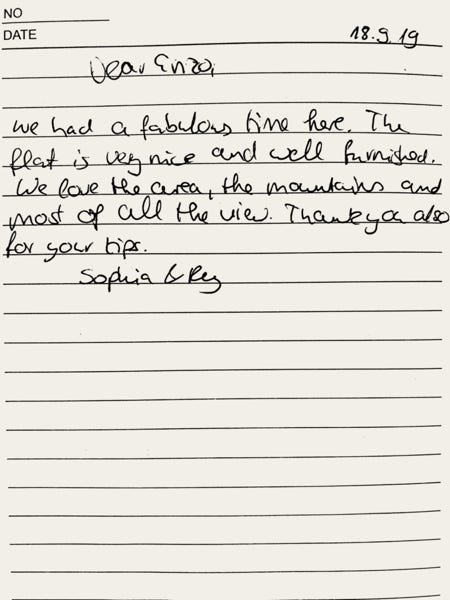 NO
DATE 18.9.19
Dear Enzo,
we had a fabulous time here. The
flat is very nice and well furnished.
We love the area, the mountains and
most of all the view. Thank you also
for your tips.
Sophia &